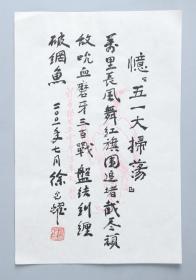 憶『五一大掃蕩』
萬里長風舞紅旗圍追堵截尽頑
敌吮血磨牙三百戰盤結糾纏
破網魚
年七月徐光耀